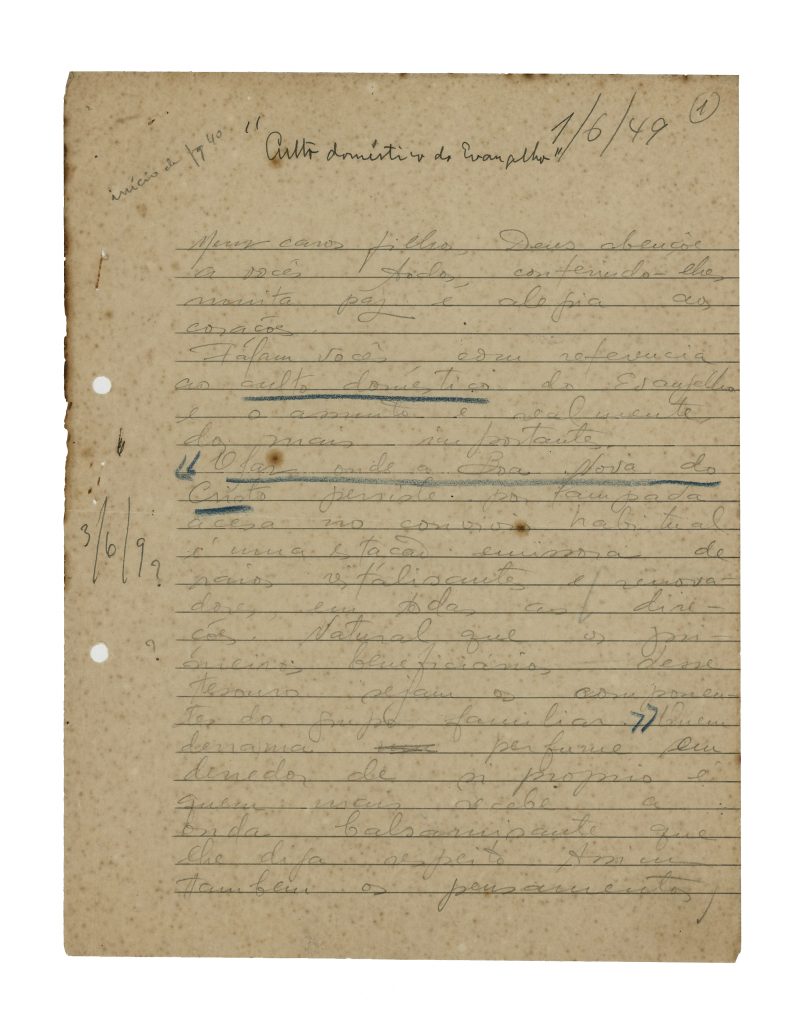 1/6/49 1
início de 1940
"Culto doméstico do Evangelho"
Meus caros filhos, Deus abençoe
a vocês todos, conferindo-lhes
muita paz e alegria aos
corações.
Falam vocês com referencia
ao culto doméstico do Evangelho
e o assunto é realmente
do mais importante.
"O lar onde a Boa Nova do
Cristo persiste por lampada
acesa no convivio habitual
é uma estação emissora de
raios vitalisantes e renova-
dores, em todas as dire-
ções. Natural que os pri-
meiros beneficiários desse
tesouro sejam os componen-
tes do grupo familiar." Quem
derrama perfume em
derredor de si proprio é
quem mais recebe a
onda balsamisante que
lhe diga respeito. Assim
tambem os pensamentos,
3/6/9?
?